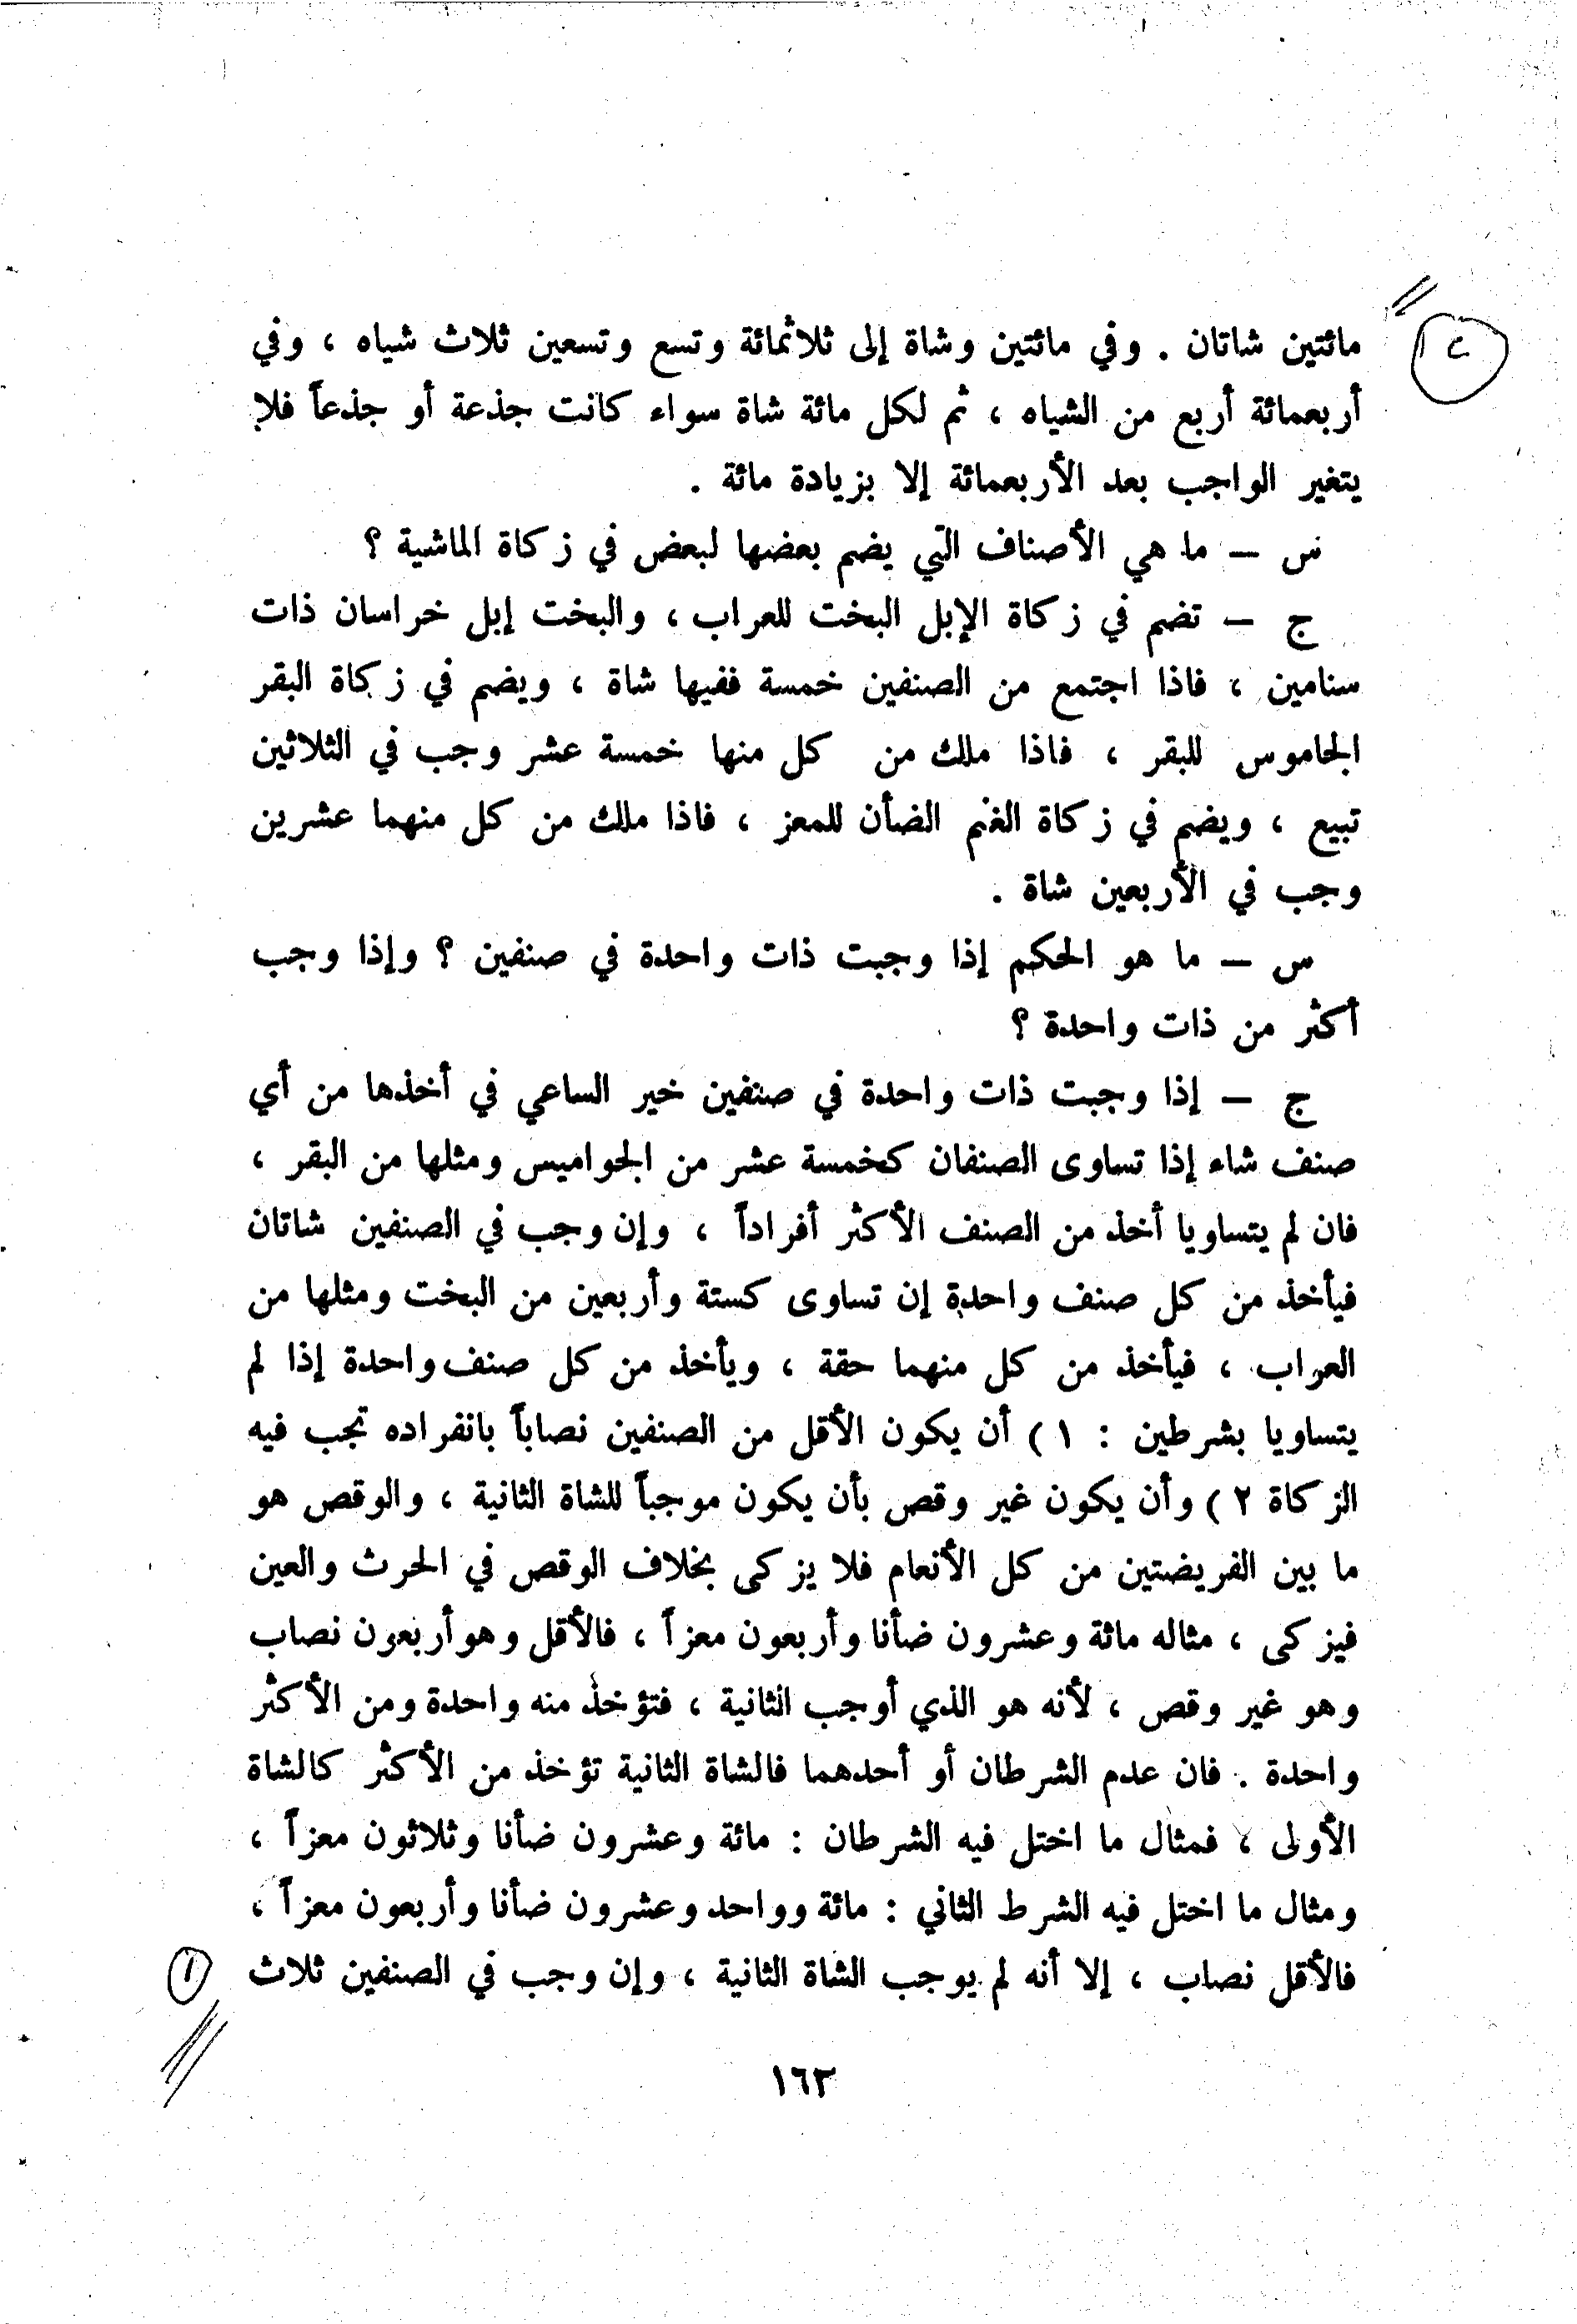 مائتين شاتان . وفي مائتين وشاة إلى ثلاثمائة وتسع وتسعين ثلاث شياه ، وفي
أربعمائة أربع من الشياه ، ثم لكل مائة شاة سواء كانت جذعة أو جذعاً فلا
يتغير الواجب بعد الأربعمائة إلا بزيادة مائة .
س – ما هي الأصناف التي يضم بعضها لبعض في زكاة الماشية ؟
ج – تضم في زكاة الإبل البخت للعراب ، والبخت إبل خراسان ذات
سنامين ، فاذا اجتمع من الصنفين خمسة ففيها شاة ، ويضم في زكاة البقر
الجاموس للبقر ، فاذا ملك من كل منها خمسة عشر وجب في الثلاثين
تبيع ، ويضم في زكاة الغنم الضأن للمعز ، فاذا ملك من كل منهما عشرين
وجب في الأربعين شاة .
س – ما هو الحكم إذا وجبت ذات واحدة في صنفين ؟ وإذا وجب
أكثر من ذات واحدة ؟
ج – إذا وجبت ذات واحدة في صنفين خير الساعي في أخذها من أي
صنف شاء إذا تساوى الصنفان كخمسة عشر من الجواميس ومثلها من البقر ،
فان لم يتساويا أخذ من الصنف الأكثر أفراداً ، وإن وجب في الصنفين شاتان
فيأخذ من كل صنف واحدة إن تساوى كستة وأربعين من البخت ومثلها من
العراب ، فيأخذ من كل منهما حقة ، ويأخذ من كل صنف واحدة إذا لم
يتساويا بشرطين : ١ ) أن يكون الأقل من الصنفين نصاباً بانفراده تجب فيه
الزكاة ٢ ) وأن يكون غير وقص بأن يكون موجباً للشاة الثانية ، والوقص هو
ما بين الفريضتين من كل الأنعام فلا يزكى بخلاف الوقص في الحرث والعين
فيزكى ، مثاله مائة وعشرون ضأنا وأربعون معزاً ، فالأقل وهو أربعون نصاب
وهو غير وقص ، لأنه هو الذي أوجب الثانية ، فتؤخذ منه واحدة ومن الأكثر
واحدة . فان عدم الشرطان أو أحدهما فالشاة الثانية تؤخذ من الأكثر كالشاة
الأولى ، فمثال ما اختل فيه الشرطان : مائة وعشرون ضأنا وثلاثون معزاً ،
ومثال ما اختل فيه الشرط الثاني : مائة وواحد وعشرون ضأنا وأربعون معزاً ،
فالأقل نصاب ، إلا أنه لم يوجب الشاة الثانية ، وإن وجب في الصنفين ثلاث
١
١٦٣